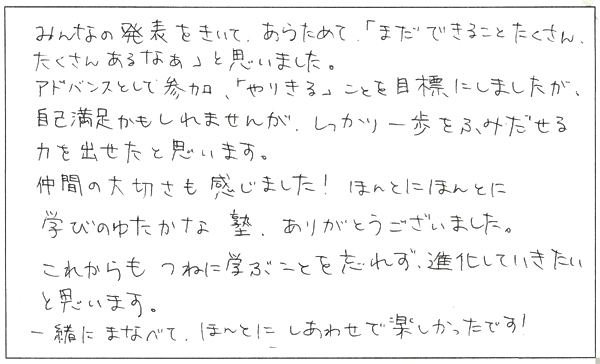 みんなの発表をきいて、あらためて、「まだできることたくさん、
たくさんあるなぁ」と思いました。
アドバンスとして参加、「やりきる」ことを目標にしましたが、
自己満足かもしれませんが、しっかり一歩をふみだせる
力を出せたと思います。
仲間の大切さも感じました！ほんとにほんとに
学びのゆたかな塾、ありがとうございました。
これからもつねに学ぶことを忘れず、進化していきたい
と思います。
一緒にまなべて、ほんとにしあわせで楽しかったです！